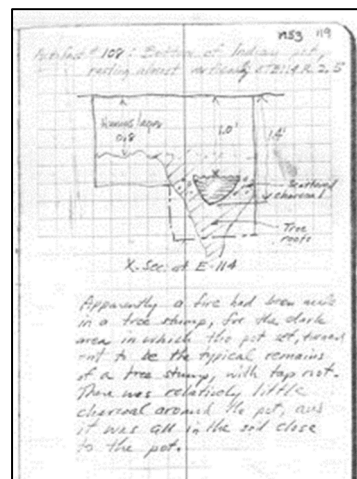 nS3 119
Artifact # 108: Bottom of Indian pot,
resting almost vertically @ E114 R 2.5
Humus layer
0.8
1.0'
1.4'
X
Scattered
charcoal
Tree
roots
X-Sec. at E-114
Apparently a fire had been made
in a tree stump, for the dark
area in which the pot set, turned
out to be the typical remains
of a tree stump, with tap root.
There was relatively little
charcoal around the pot, and
it was all in the soil close
to the pot.